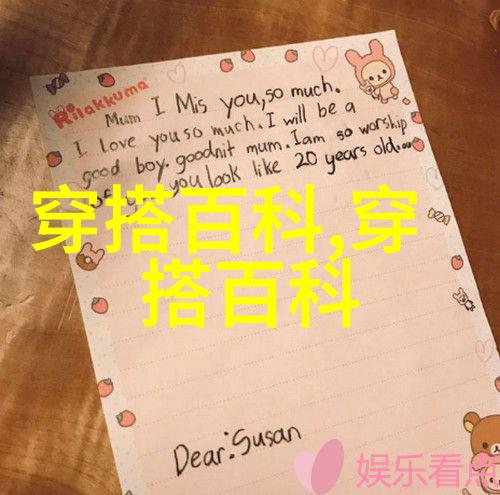 Rilakkuma
Mum I Mis you,so much.
I love you so much.I will be a
good boy.goodnit mum.Iam so worship
you look like 20 years old.
穿搭百科,穿
搭百科
Dear:Susan
娱乐看点